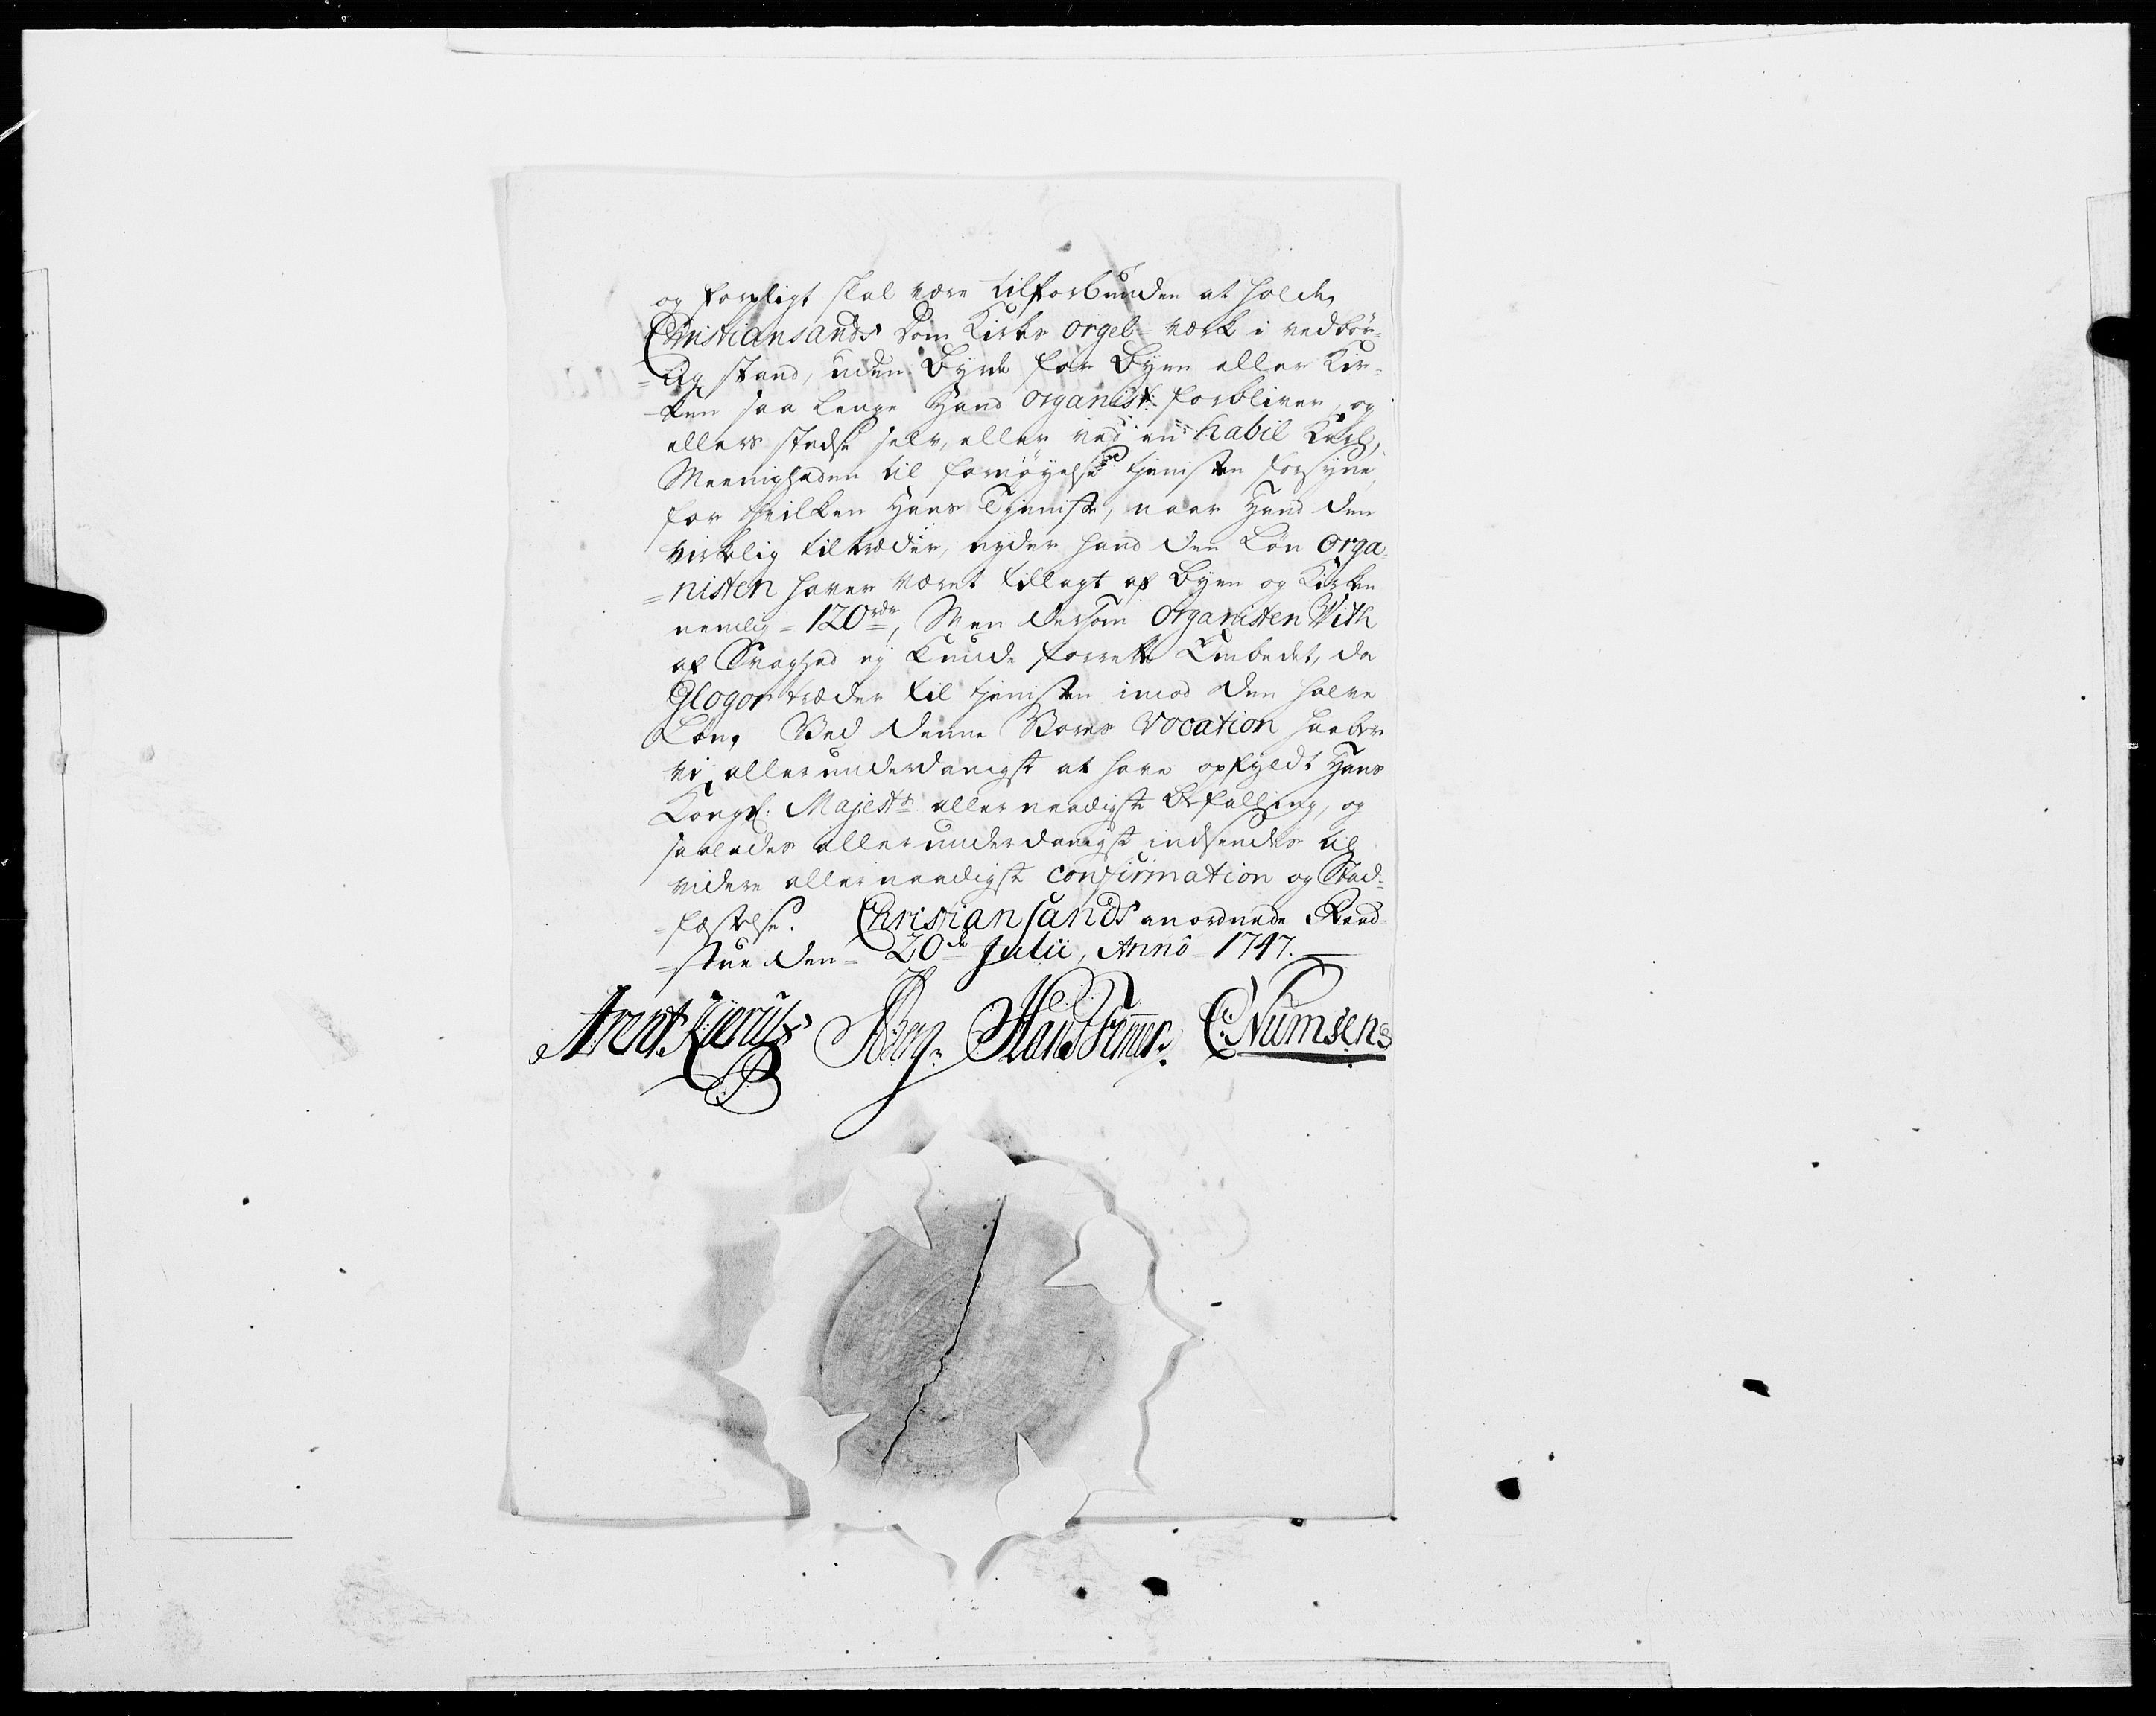 og forpligt skal være tilforbunden at holde
Christiansands Dom Kirkes orgel-værk i vedbør-
=lig stand, uden Byrde for Byen eller Kir-
ken saa lenge Hand organist forbliver, og
ellers stedse selv, eller ved en habil Karl,
Meenigheden til fornøyelse tjenisten forsyne,
for hvilken Hans Tjeniste, naar Hand den
virkelig tilræder, nyder hand den Løn orga-
=nisten haver været tillagt af Byen og Kirken
nemlig = 120 rdr; Men dersom Organisten With
af Svaghed ej kunde forrette Embedet, da
Glogor træder til tjenisten imod den halve
Løn. Ved denne Vores Vocation haaber
vi allerunderdanigst at have opfyldt Hans
Kongl: Majestts allernaadigste Befalling, og
saaledes allerunderdanigst indsendes til
videre allernaadigste confirmation og Stad-
=fæstelse. Christiansands anordnede Raad-
=stue den = 20de Julii, Anno 1747.
Arent Berg Hans C: Numsen